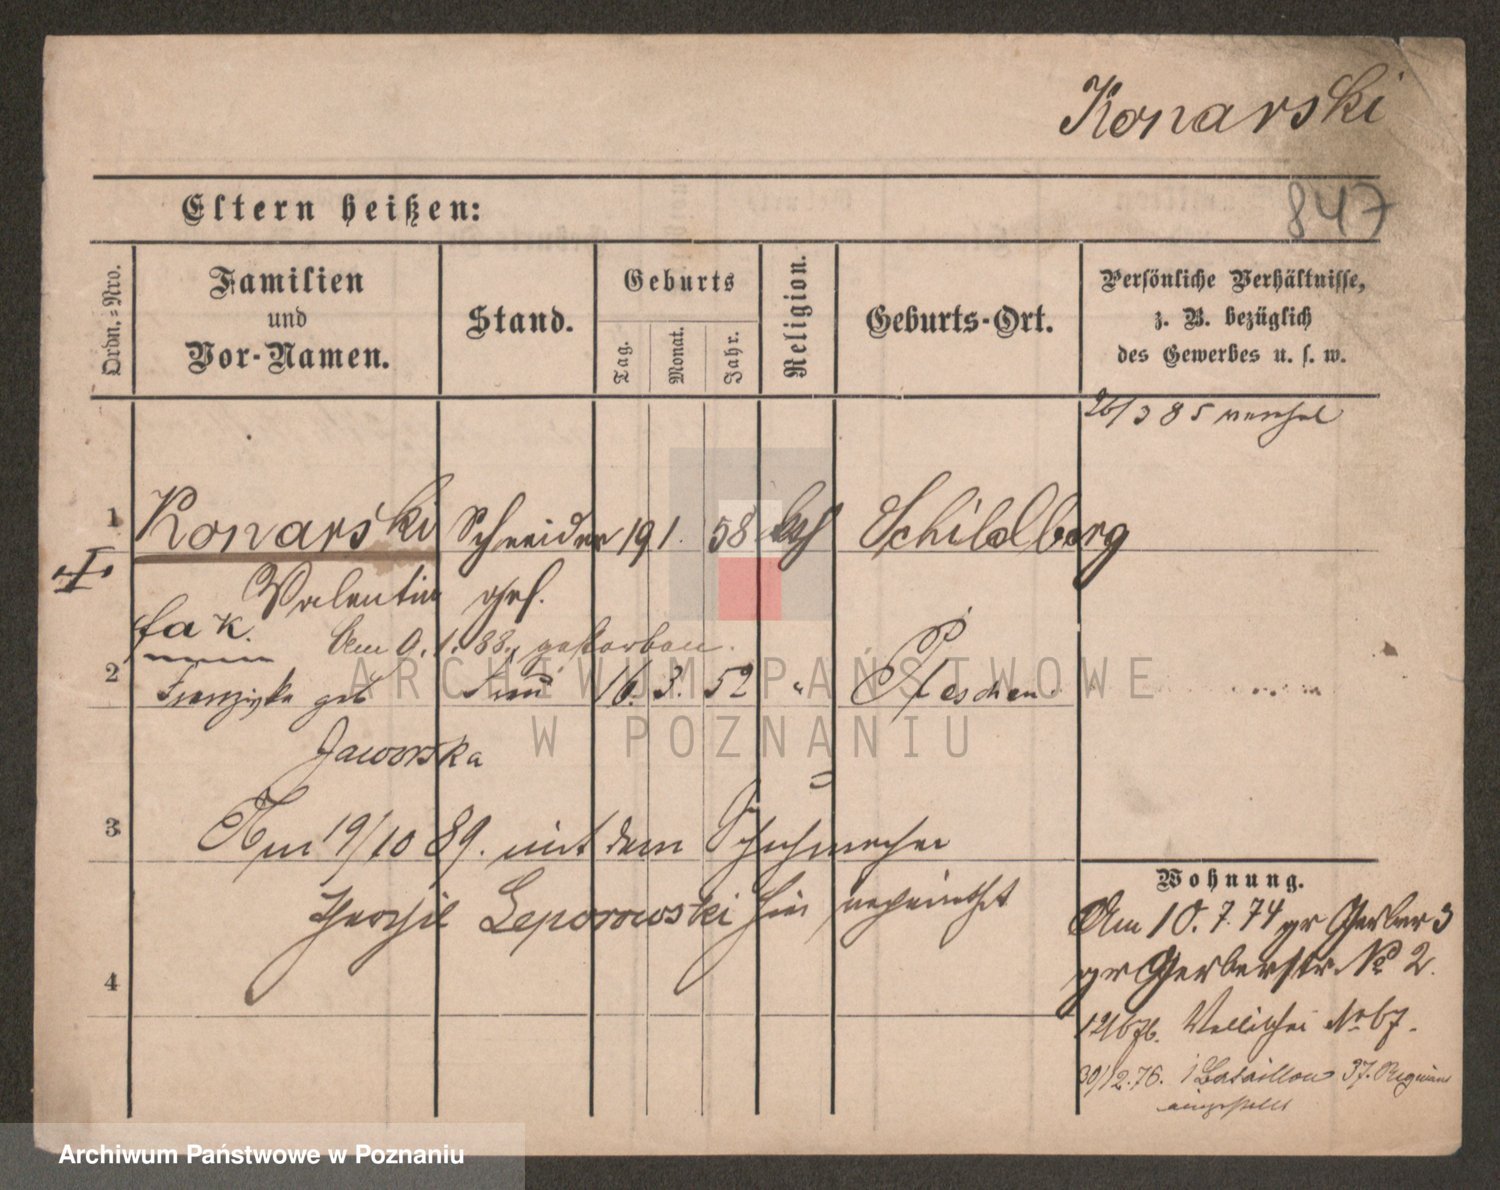 Konarski
847
Eltern heißen:
Ordn.=Nro.
Familien
und
Vor-Namen.
Stand.
Geburts
Tag.
Monat.
Jahr.
Religion.
Geburts-Ort.
Persönliche Verhältnisse,
z. B. bezüglich
des Gewerbes u. s. w.
26/3 85
1 Konarski Schneider 19 1. 58 kth Schildberg
Valentin ges.
fak. Am 9.1.88. gestorben.
2 Franziska geb Frau 16. 3. 52 " Pleschen
Jaworska
3 Am 19/10 89. mit dem Schuhmacher
Leporowski hier
4
Wohnung.
Am 10.7.74 gr Gerber 3
gr Gerberstr. No 2.
12/6 76. Wallischei No 67.
30/12.76. 1 Bataillon 37. Regiment
eingestellt
ARCHIWUM PAŃSTWOWE
W POZNANIU
Archiwum Państwowe w Poznaniu